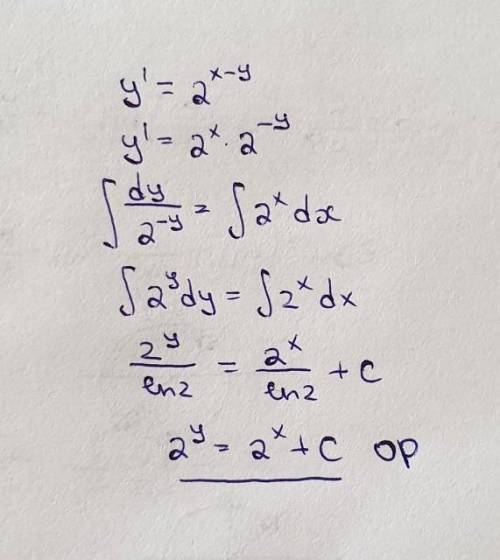 y' = 2^{x-y}
y' = 2^x · 2^{-y}
∫ dy/2^{-y} = ∫ 2^x dx
∫ 2^y dy = ∫ 2^x dx
2^y/ln2 = 2^x/ln2 + C
2^y = 2^x + C ор